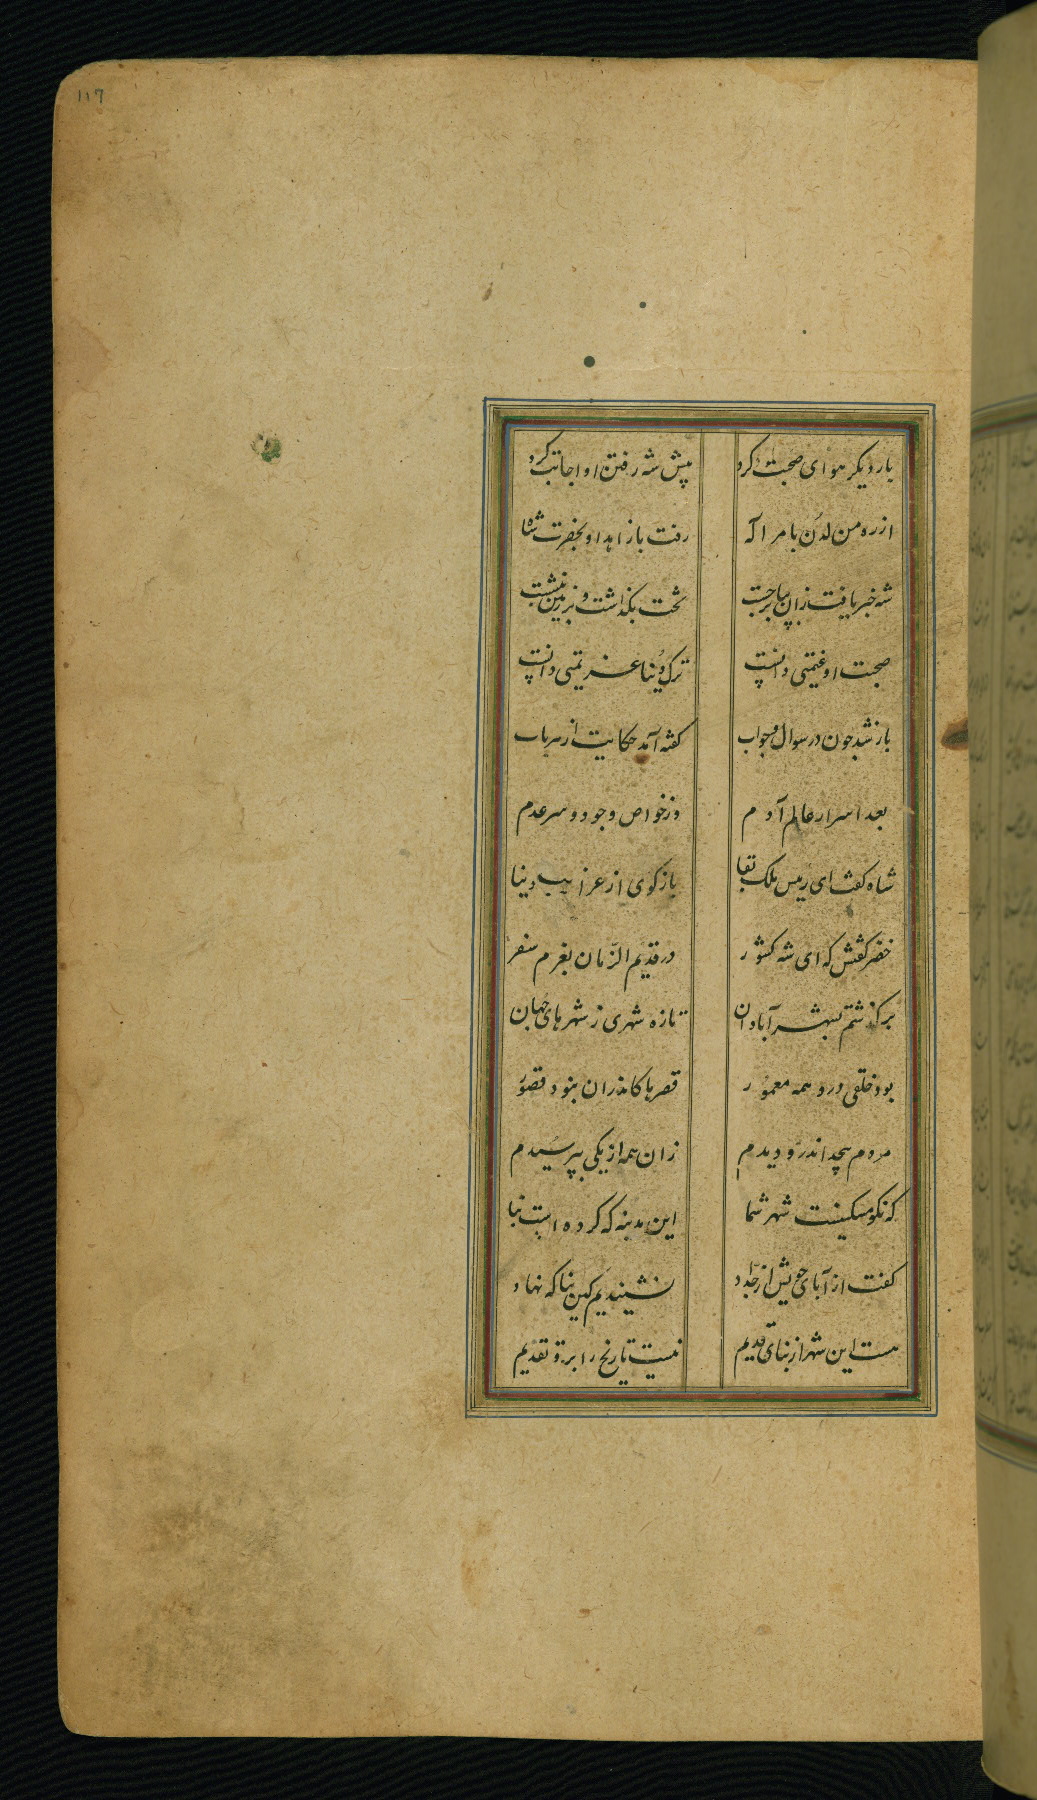 ۱۱۷
بار دیکر هوای صحبت کرد پیش شه رفتن او اجابت کرد
از ره من لدن بامر اله رفت باز اهد او بحضرت شاه
شه خبر یافت زان بپا برجست تخت بکذاشت و بر زمین بنشست
صحبت او غنیمتی دانست ترک دنیا عزیمتی دانست
باز شد چون در سوال و جواب کفته آمد حکایت از هر باب
بعد اسرار عالم آدم وز خواص وجود و سر عدم
شاه کفت ای رییس ملک بقا باز کوی از عرایب دنیا
خضر کفتش که ای شه کشور در قدیم الزمان بغرم سفر
بر کذشتم بشهر آبادان تازه شهری ز شهرهای جهان
بود خلقی درو همه معمور قصرها کاندران بنود قصور
مردم بیحد اندرو دیدم زان همه از یکی بپرسیدم
که نکو مسکینست شهر شما این مدینه که کرده است بنا
کفت از آبای خویش از اجداد نشیندیم کین بنا که نهاد
هست این شهر از بنای قدیم نیست تاریخ را برو تقدیم